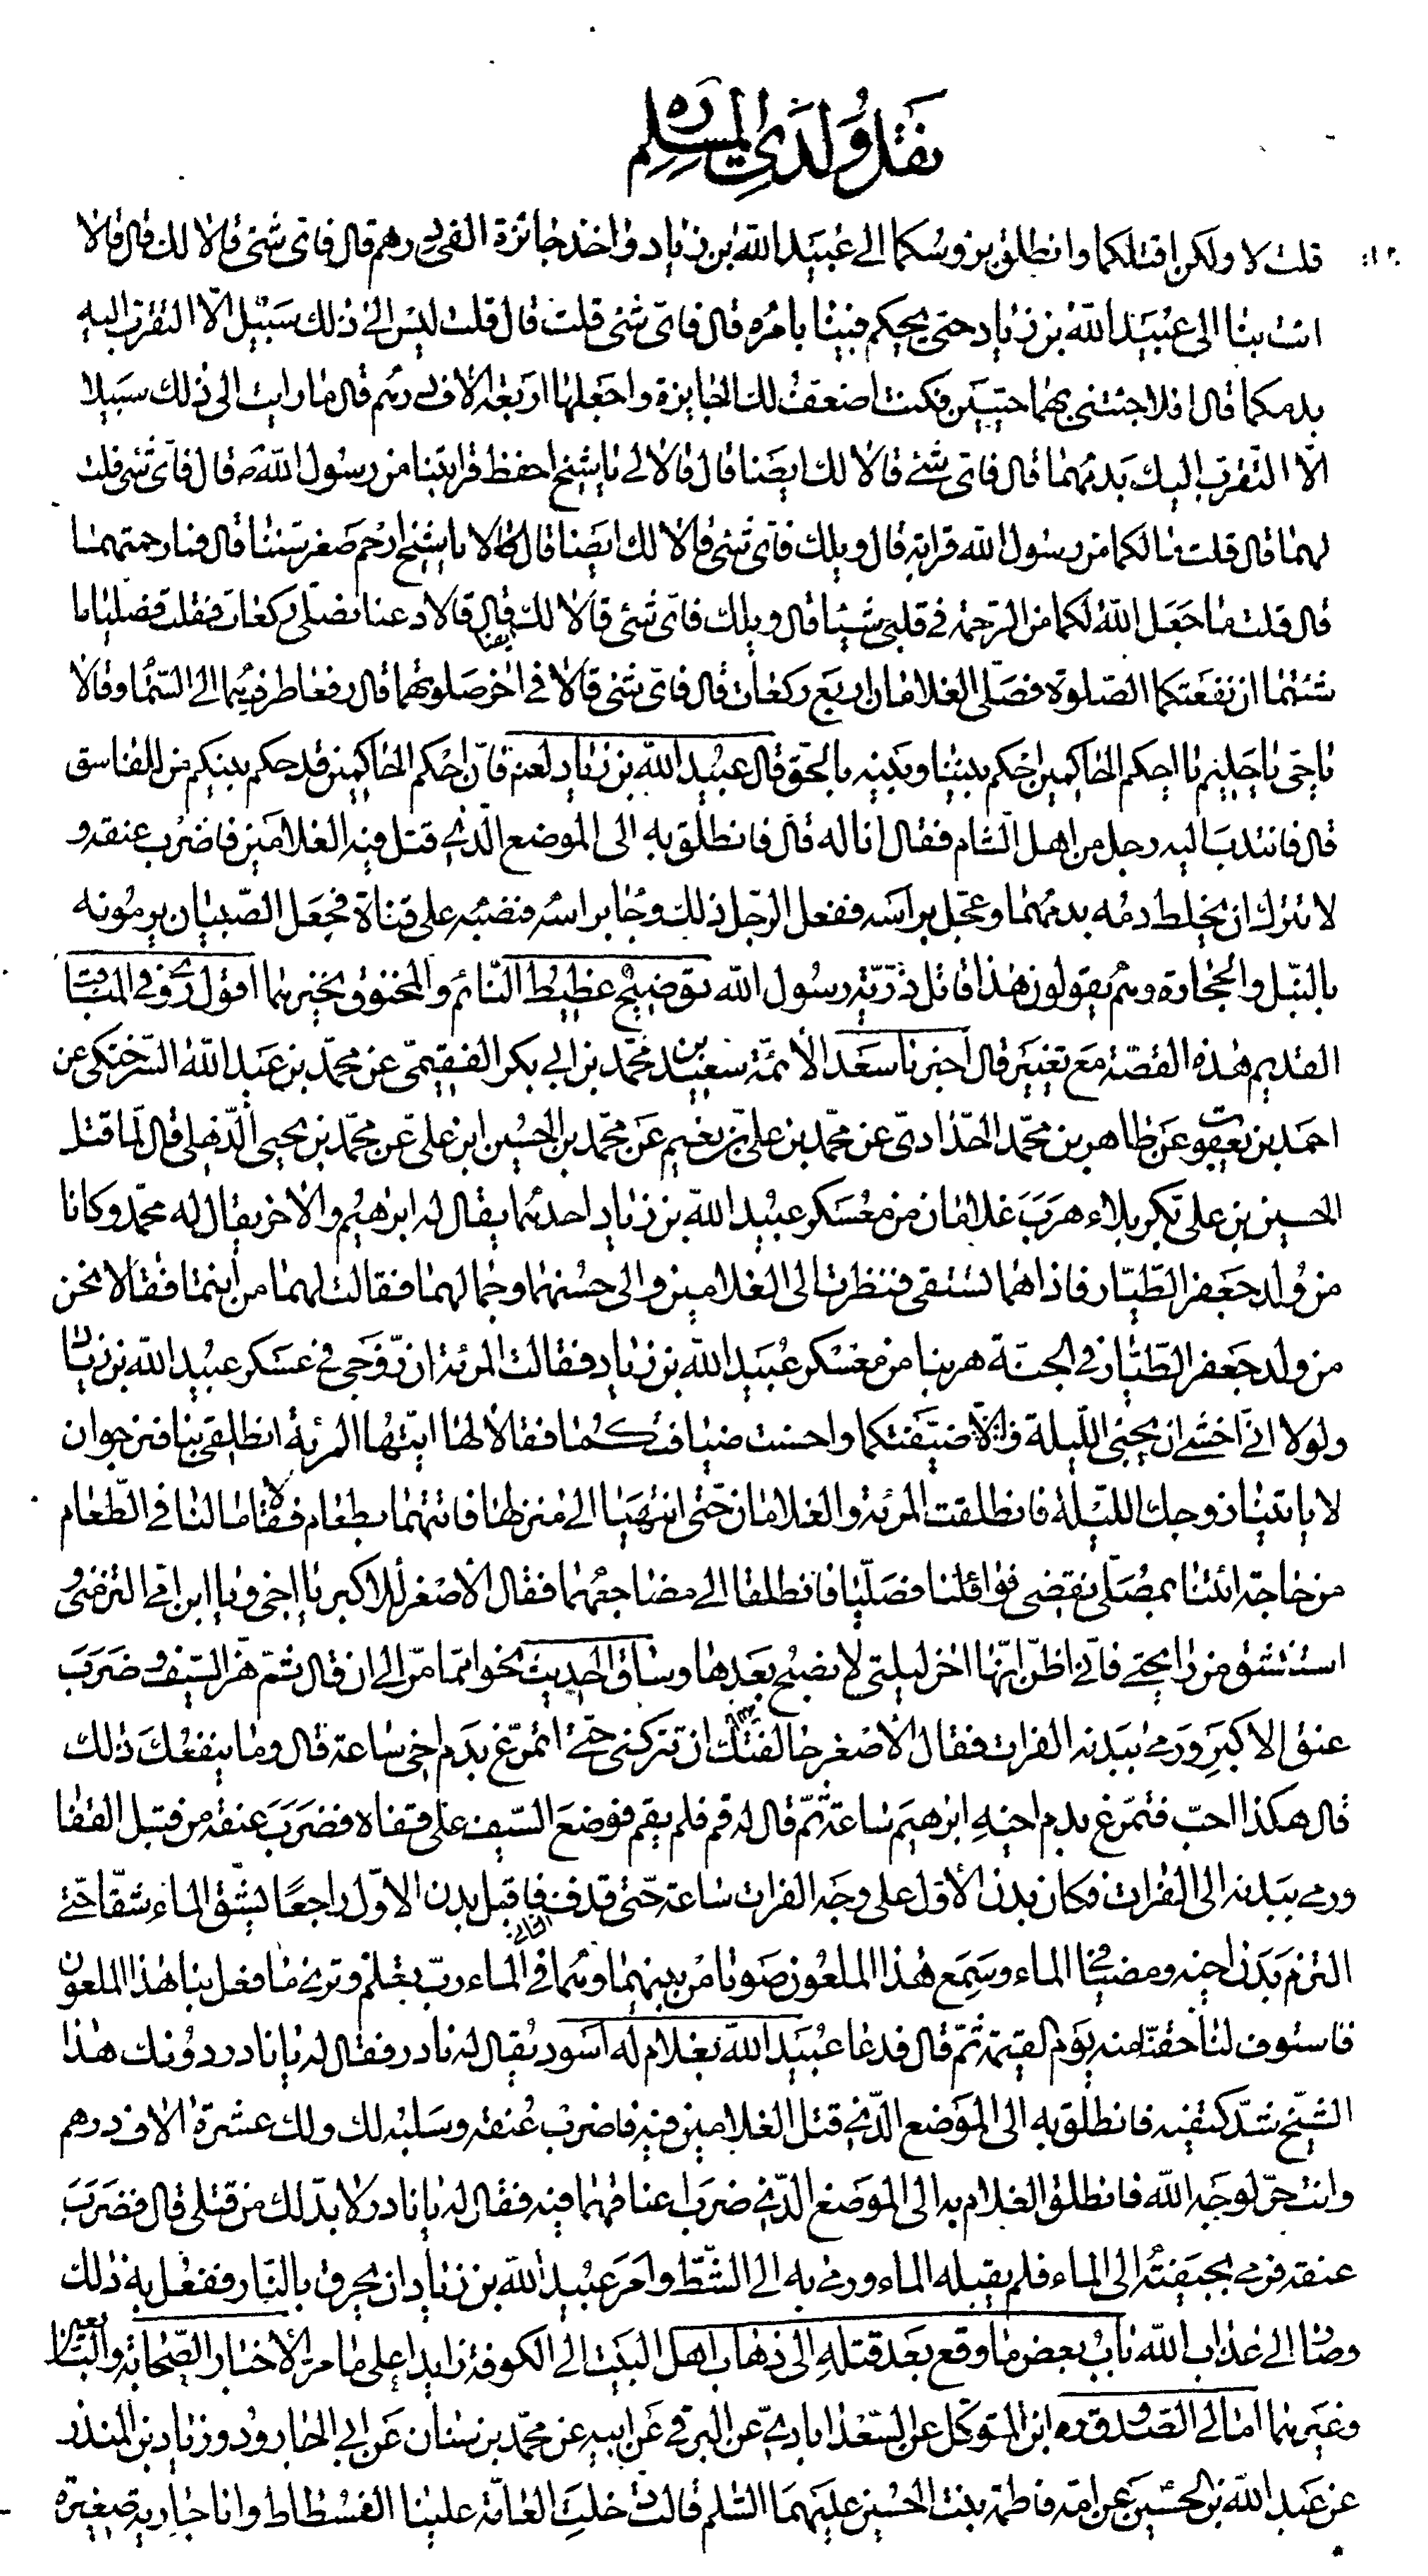 نقتل ولدي المسلم ره
قلت لا ولكن اقتلكما وانطلق برؤسكما الى عبيد الله بن زياد واخذ جائزة الفي درهم قال فاى شئ قالا لك قال قالا
ائت بنا الى عبيد الله بن زياد حتى يحكم فينا بامره قال فاى شئ قلت قال قلت ليس الى ذلك سبيل الا التقرب اليه
بدمكما قال افلا جئتني بهما حيين فكنت اضعف لك الجايزة واجعلها اربعة الاف درهم قال ما رايت الى ذلك سبيلا
الا التقرب اليك بدمهما قال فاى شئ قالا لك ايضا قال قالا لي يا شيخ احفظ قرابتنا من رسول الله ص قال فاى شئ قلت
لهما قال قلت ما لكما من رسول الله قرابة قال ويلك فاى شئ قالا لك ايضا قال قالا يا شيخ ارحم صغر سننا قال فما رحمتهما
قال قلت ما جعل الله لكما من الرحمة في قلبي شيئا قال ويلك فاى شئ قالا لك ايضا قال قالا دعنا نصلى ركعات فقلت فصليا ما
شئتما ان نفعتكما الصلوة فصلى الغلامان اربع ركعات قال فاى شئ قالا في اخر صلوتهما قال رفعا طرفيهما الى السماء وقالا
يا حي يا حليم يا احكم الحاكمين احكم بيننا وبينه بالحق قال عبيد الله بن زياد لعنه فان احكم الحاكمين قد حكم بينكم من للفاسق
قال فانتدب اليه رجل من اهل الشام فقال انا له قال فانطلق به الى الموضع الذي قتل فيه الغلامين فاضرب عنقه و
لا تترك ان يختلط دمه بدمهما وعجل براسه ففعل الرجل ذلك وجا براسه فنصبه على قناة فجعل الصبيان يرمونه
بالنبل والحجارة وهم يقولون هذا قاتل ذرية رسول الله توضيح غطيط النائم والمخنوق نخيرهما اقول روى في المناقب
القديم هذه القصة مع تغيير قال اخبرنا سعد الائمة سعيد بن محمد بن ابي بكر الفقيمى عن محمد بن عبد الله السرختكى عن
احمد بن يعقوب عن طاهر بن محمد الحدادى عن محمد بن على بن نعيم عن محمد بن الحسين ابن على عن محمد بن يحيى الذهلى قال لما قتل
الحسين بن على بكربلاء هرب غلامان من معسكر عبيد الله بن زياد احدهما يقال له ابرهيم والاخر يقال له محمد وكانا
من ولد جعفر الطيار فاذا هما تستقى فنظرت الى الغلامين والى حسنهما وجمالهما فقالت لهما من انتما فقالا نحن
من ولد جعفر الطيار في الجنة هربنا من معسكر عبيد الله بن زياد فقالت المرئة ان زوجي في عسكر عبيد الله بن زياد
ولولا اني اخشى ان يجئ الليلة والا ضيفتكما واحسنت ضيافتكما فقالا لها ايتها المرئة انطلقي بنا فنرجو ان
لا ياتينا زوجك الليلة فانطلقت المرئة والغلامان حتى انتهيا الى منزلها فاتتهما بطعام فقالا ما لنا في الطعام
من حاجة ائتنا بمصلى نقضي فوائتنا فصليا فانطلقا الى مضاجعهما فقال الاصغر للاكبر يا اخي ويا ابن امي التزمني و
استنشق من رايحتي فاني اظن انها اخر ليلتي لا نصبح بعدها وساق الحديث نحوا مما مر الى ان قال ثم هز السيف وضرب
عنق الاكبر ورمى ببدنه الفرات فقال الاصغر سئلتك الله ان تتركني حتى اتمرغ بدم اخي ساعة قال وما ينفعك ذلك
قال هكذا احب فتمرغ بدم اخيه ابرهيم ساعة ثم قال له قم فلم يقم فوضع السيف على قفاه فضرب عنقه من قبل القفا
ورمى ببدنه الى الفرات فكان بدن الاول على وجه الفرات ساعة حتى قذف الثاني فاقبل بدن الاول راجعا يشق الماء شقا حتى
التزم بدن اخيه ومضيا في الماء وسمع هذا الملعون صوتا من بينهما وهما في الماء رب تعلم وترى ما فعل بنا هذا الملعون
فاستوف لنا حقنا منه يوم القيمة ثم قال فدعا عبيد الله بغلام له اسود يقال له نادر فقال له يا نادر دونك هذا
الشيخ شد كتفيه فانطلق به الى الموضع الذي قتل الغلامين فيه فاضرب عنقه وسلبه لك ولك عشرة الاف درهم
وانت حر لوجه الله فانطلق الغلام به الى الموضع الذي ضرب اعناقهما فيه فقال له يا نادر لا بد لك من قتلى قال فضرب
عنقه فرمى بجيفته الى الماء فلم يقبله الماء ورمى به الى الشط وامر عبيد الله بن زياد ان يحرق بالنار ففعل به ذلك
وصار الى عذاب الله باب بعض ما وقع بعد قتله الى ذهاب اهل البيت الى الكوفة زايدا على ما مر الاخبار الصحابة والتابعين
وغيرهما امالي الصدوق ره ابن المتوكل عن السعدابادي عن البرقي عن ابيه عن محمد بن سنان عن ابي الجارود وزياد بن المنذر
عن عبد الله بن الحسين عن امه فاطمة بنت الحسين عليهما السلم قالت دخلت العامة علينا الفسطاط وانا جارية صغيرة